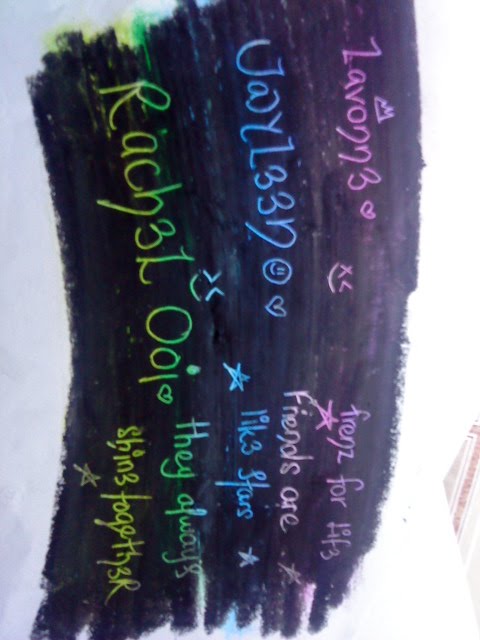 Lavonn3 ♡
JayL33n ☺ ♡
Rach3L Ooi ♡
frenz for Lif3
Friends are
lik3 stars
they always
shin3 tog3th3R